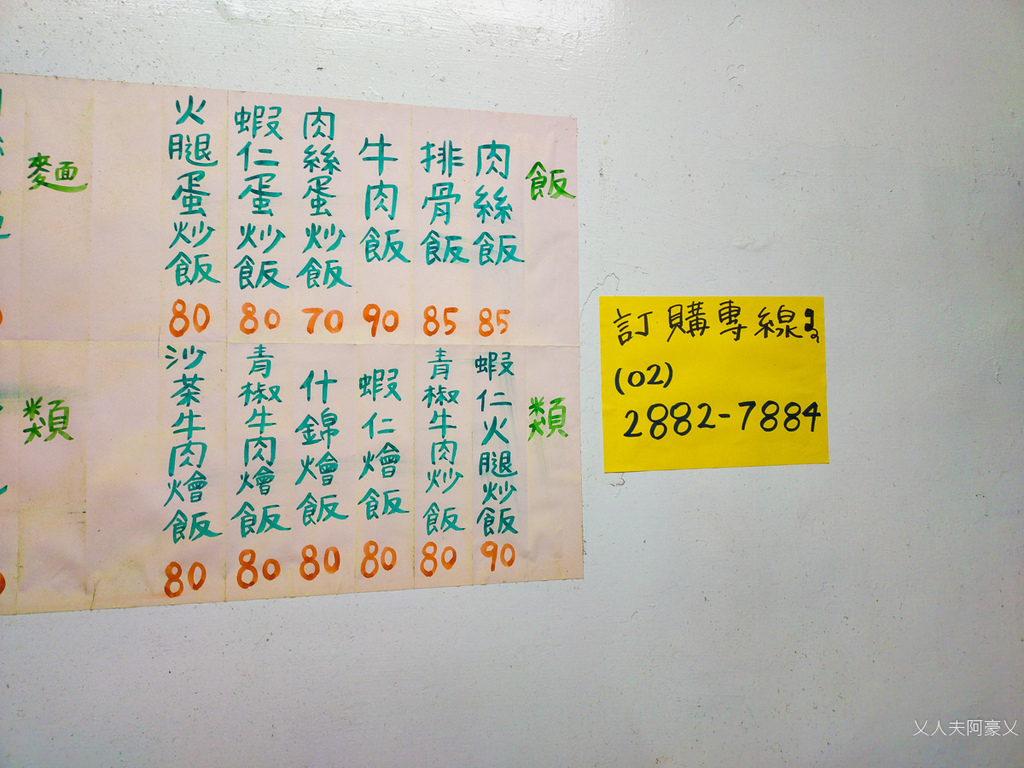 飯類
肉絲飯 85
排骨飯 85
牛肉飯 90
肉絲蛋炒飯 70
蝦仁蛋炒飯 80
火腿蛋炒飯 80
蝦仁火腿炒飯 90
青椒牛肉炒飯 80
蝦仁燴飯 80
什錦燴飯 80
青椒牛肉燴飯 80
沙茶牛肉燴飯 80
麵類
訂購專線
(02)
2882-7884
乂人夫阿豪乂